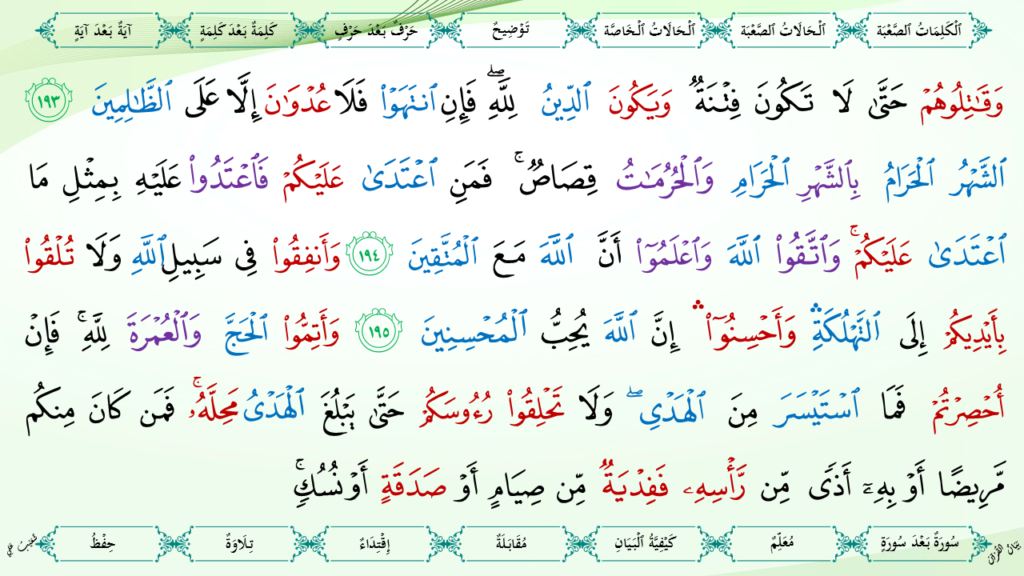 اَلْكَلِمَاتُ الصَّعْبَة اَلْحَالَاتُ الصَّعْبَة اَلْحَالَاتُ الْخَاصَّة تَوْضِيحٌ حَرْفٌ بَعْدَ حَرْفٍ كَلِمَةٌ بَعْدَ كَلِمَةٍ آيَةٌ بَعْدَ آيَةٍ
وَقَٰتِلُوهُمْ حَتَّىٰ لَا تَكُونَ فِتْنَةٌ وَيَكُونَ ٱلدِّينُ لِلَّهِ ۖ فَإِنِ ٱنتَهَوْا۟ فَلَا عُدْوَٰنَ إِلَّا عَلَى ٱلظَّٰلِمِينَ ١٩٣
ٱلشَّهْرُ ٱلْحَرَامُ بِٱلشَّهْرِ ٱلْحَرَامِ وَٱلْحُرُمَٰتُ قِصَاصٌ ۚ فَمَنِ ٱعْتَدَىٰ عَلَيْكُمْ فَٱعْتَدُوا۟ عَلَيْهِ بِمِثْلِ مَا
ٱعْتَدَىٰ عَلَيْكُمْ ۚ وَٱتَّقُوا۟ ٱللَّهَ وَٱعْلَمُوٓا۟ أَنَّ ٱللَّهَ مَعَ ٱلْمُتَّقِينَ ١٩٤ وَأَنفِقُوا۟ فِى سَبِيلِ ٱللَّهِ وَلَا تُلْقُوا۟
بِأَيْدِيكُمْ إِلَى ٱلتَّهْلُكَةِ ۛ وَأَحْسِنُوٓا۟ ۛ إِنَّ ٱللَّهَ يُحِبُّ ٱلْمُحْسِنِينَ ١٩٥ وَأَتِمُّوا۟ ٱلْحَجَّ وَٱلْعُمْرَةَ لِلَّهِ ۚ فَإِنْ
أُحْصِرْتُمْ فَمَا ٱسْتَيْسَرَ مِنَ ٱلْهَدْىِ ۖ وَلَا تَحْلِقُوا۟ رُءُوسَكُمْ حَتَّىٰ يَبْلُغَ ٱلْهَدْىُ مَحِلَّهُۥ ۚ فَمَن كَانَ مِنكُم
مَّرِيضًا أَوْ بِهِۦٓ أَذًى مِّن رَّأْسِهِۦ فَفِدْيَةٌ مِّن صِيَامٍ أَوْ صَدَقَةٍ أَوْ نُسُكٍ ۚ
سُورَةٌ بَعْدَ سُورَةٍ مُعَلِّمٌ كَيْفِيَّةُ الْبَيَانِ مُقَابَلَةٌ إِقْتِدَاءٌ تِلَاوَةٌ حِفْظٌ